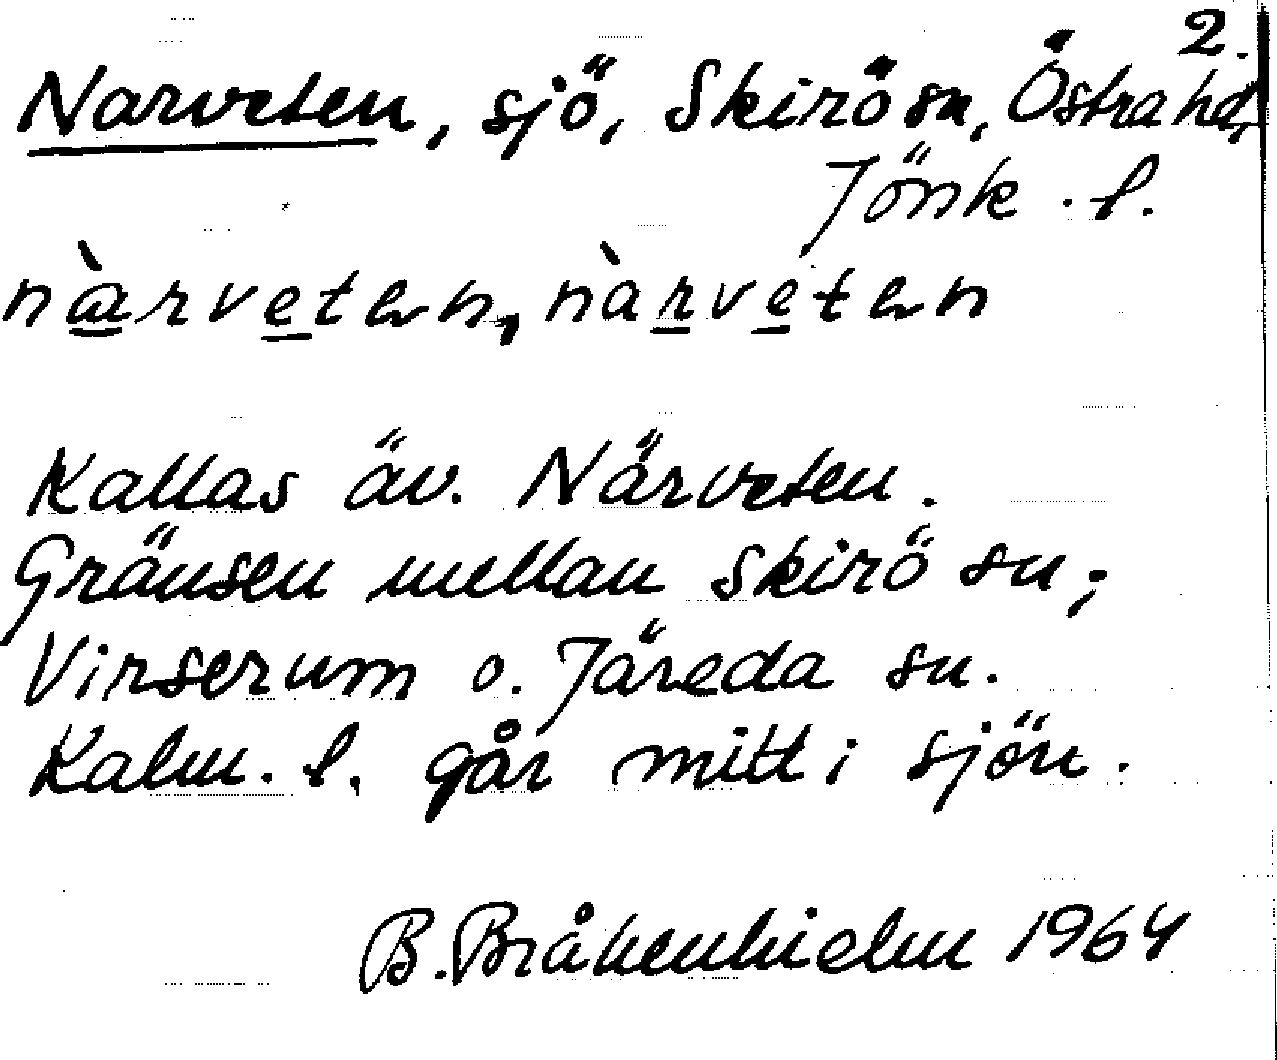 2.
Narveten, sjö, Skirö sn, Östra hd,
Jönk. l.
nàrveten, nàrveten
Kallas äv. Närveten.
Gränsen mellan Skirö sn,
Virserum o. Järeda sn.
Kalm. l. går mitt i sjön.
B. Bråkenhielm 1964